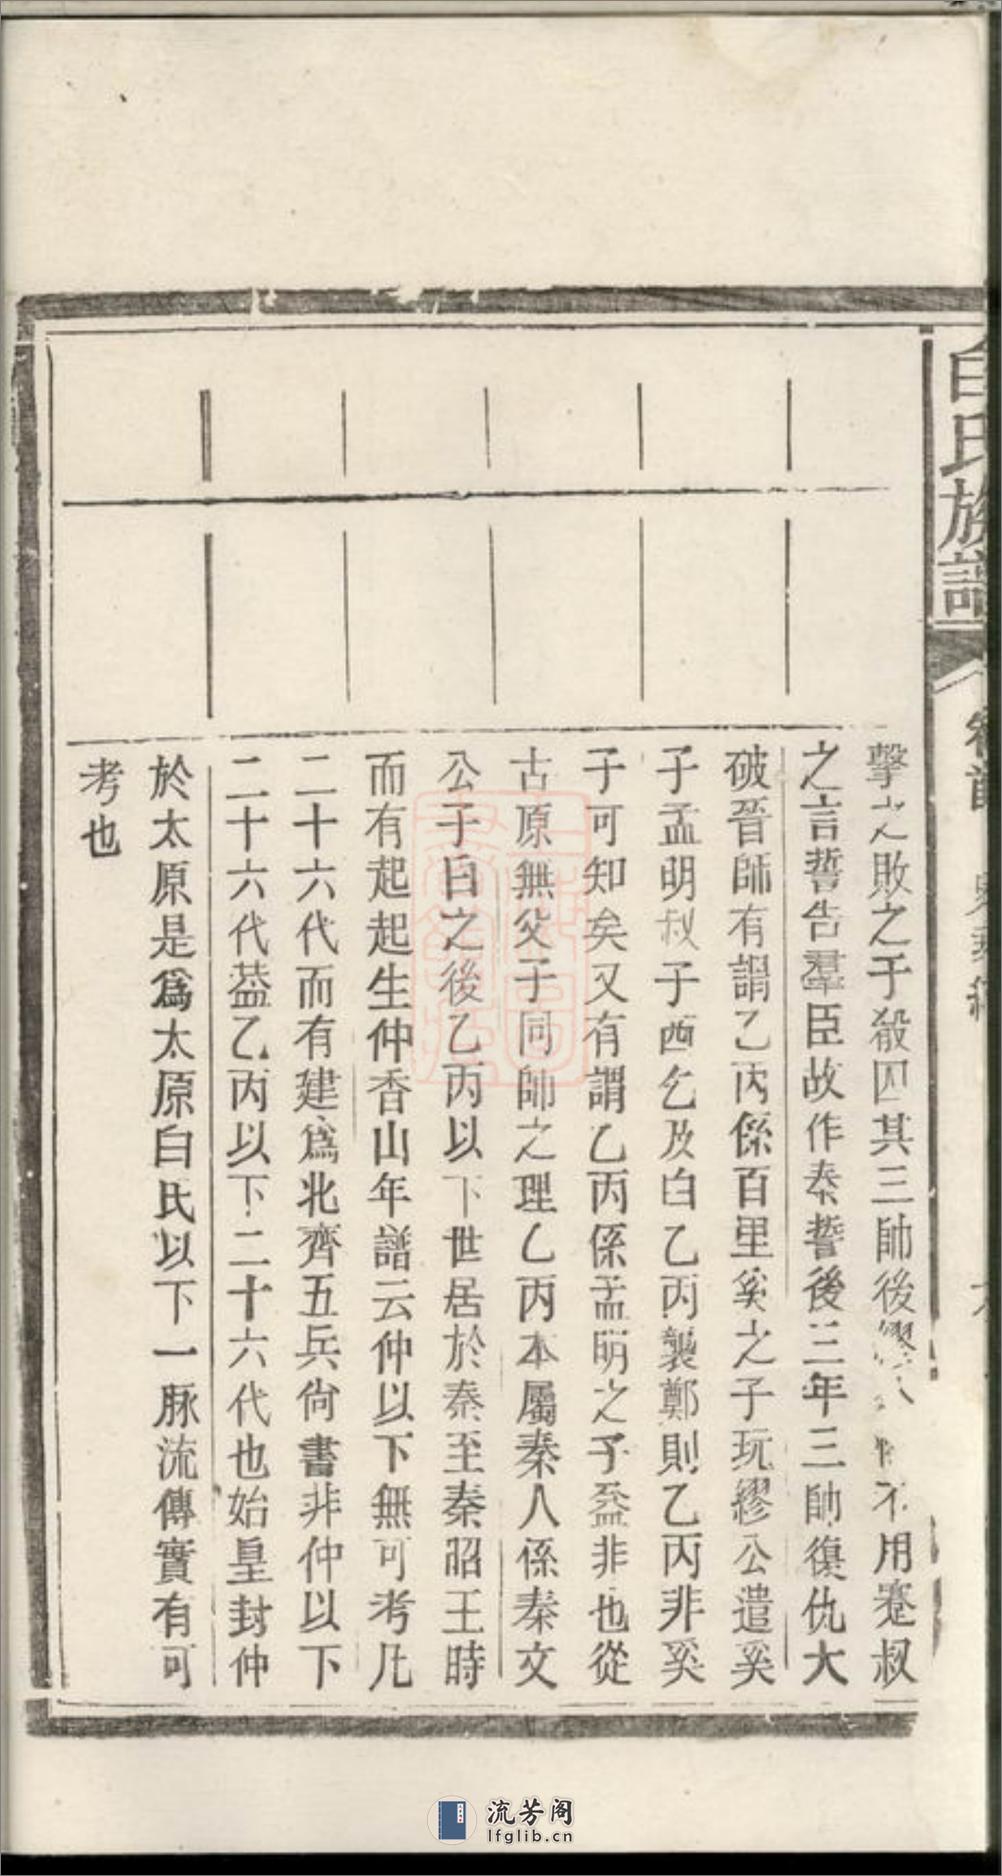 白氏族譜
卷首
擊之敗之于殽囚其三帥後繆公 不用蹇叔
之言誓告羣臣故作秦誓後三年三帥復仇大
破晉師有謂乙丙係百里奚之子玩繆公遣奚
子孟明叔子西乞及白乙丙襲鄭則乙丙非奚
子可知矣又有謂乙丙係孟明之子益非也從
古原無父子同帥之理乙丙本屬秦人係秦文
公子白之後乙丙以下世居於秦至秦昭王時
而有起起生仲香山年譜云仲以下無可考凡
二十六代而有建爲北齊五兵尙書非仲以下
二十六代葢乙丙以下二十六代也始皇封仲
於太原是爲太原白氏以下一脉流傳實有可
考也
流芳阁
lfglib.cn